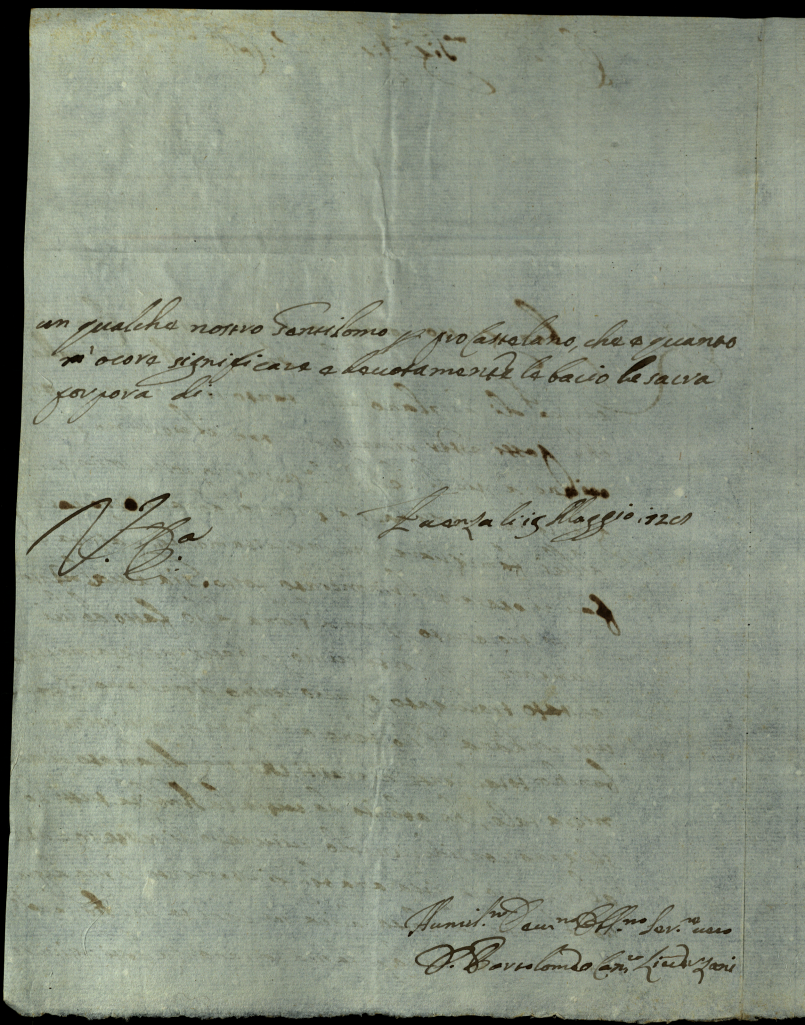 un qualche nostro Gentilomo p. pro Castelano, che e quanto
m'ocore significare e devotamente le bacio le sacra
porpora di.
V. E.a
Faenza li 19 Maggio
Humil.mo Dev.mo Obb.mo Ser.re vero
D. Bartolomeo Can.co